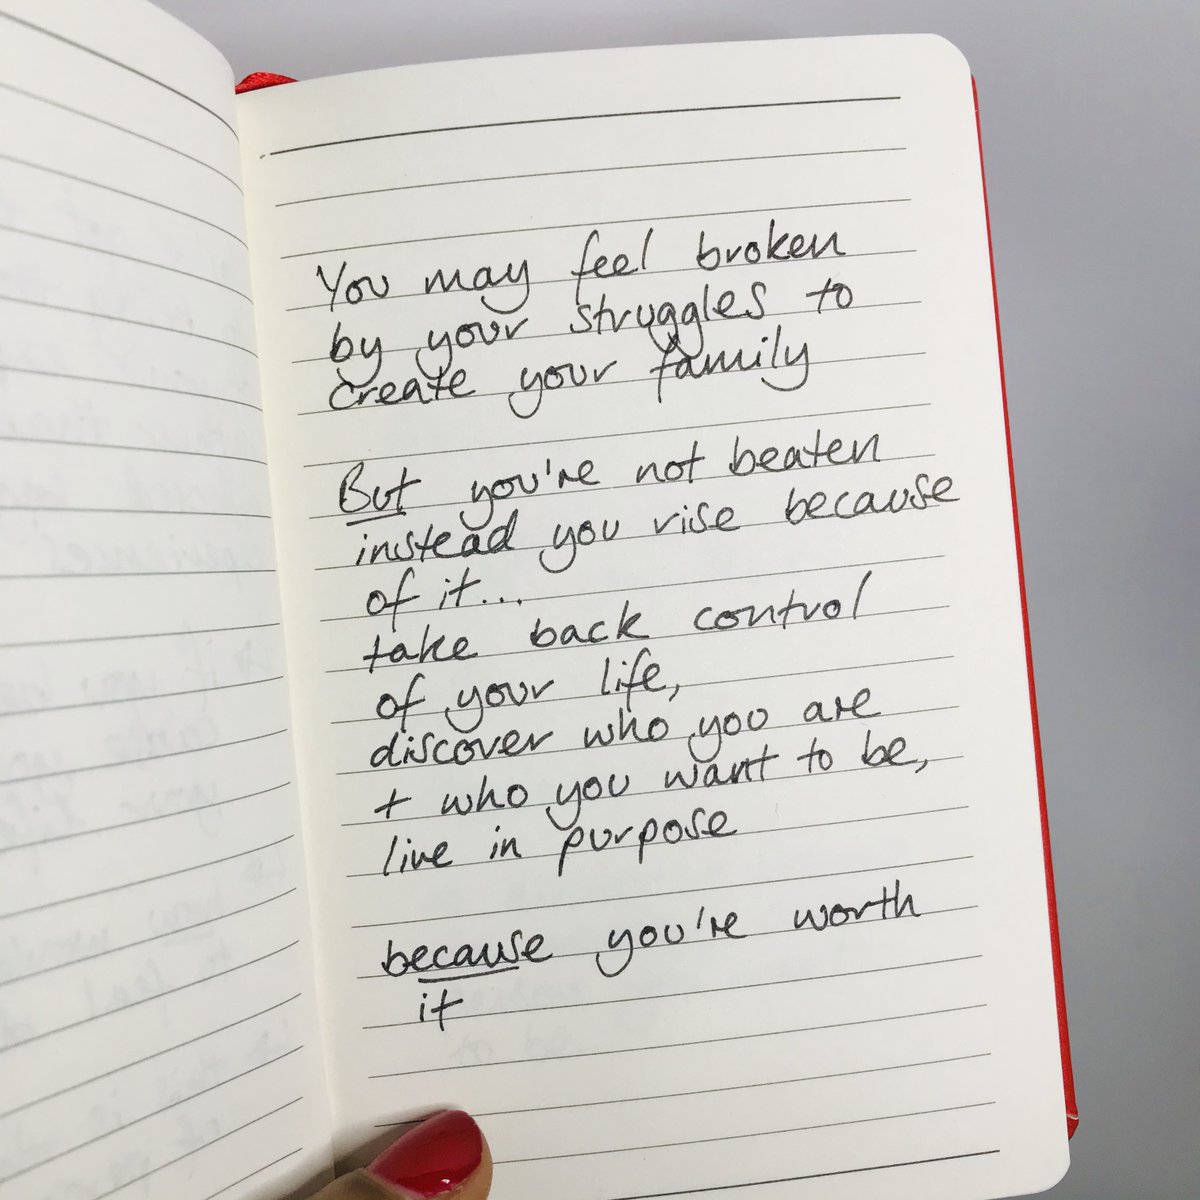 You may feel broken
by your struggles to
create your family
But you're not beaten
instead you rise because
of it...
take back control
of your life,
discover who you are
+ who you want to be,
live in purpose
because you're worth
it